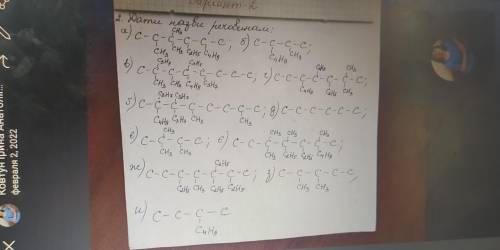 Варіант-2
2. Дати назви речовинам:
CH₃
а) C-C-C-C-C-C; б) C-C-C-C;
CH₃ CH₃ C₂H₅ C₂H₅ C₄H₉ CH₃
C₂H₅ C₂H₅
в) C-C-C-C-C-C-C-C-C; г) C-C-C-C-C-C-C;
CH₃ CH₃ C₄H₉ C₂H₅
CH₃
C₂H₅ C₂H₅
C-C-C-C-C-C-C-C-C; д) C-C-C-C-C-C;
C₄H₉ C₂H₅ CH₃
CH₃
CH₃ CH₃ CH₃ CH₃
е) C-C-C-C-C; є) C-C-C-C-C-C-C;
CH₃ CH₃ CH₃ C₂H₅ C₂H₅ CH₃
C₂H₅
ж) C-C-C-C-C-C-C-C; з) C-C-C-C-C,
C₂H₅ CH₃ C₂H₅ C₂H₅ CH₃ CH₃
и) C-C-C-C
C₄H₉
Ковтун Ірина Анатолі...
февраля 2, 2022